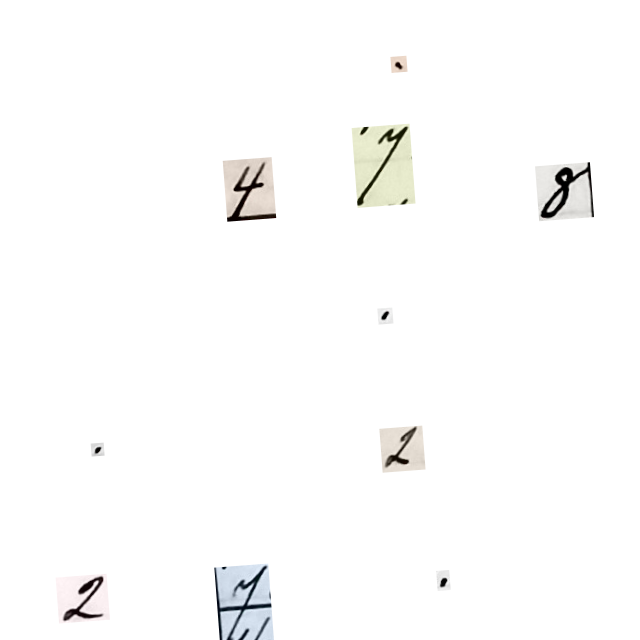 .
4 7 8
.
. 2
2 7 .